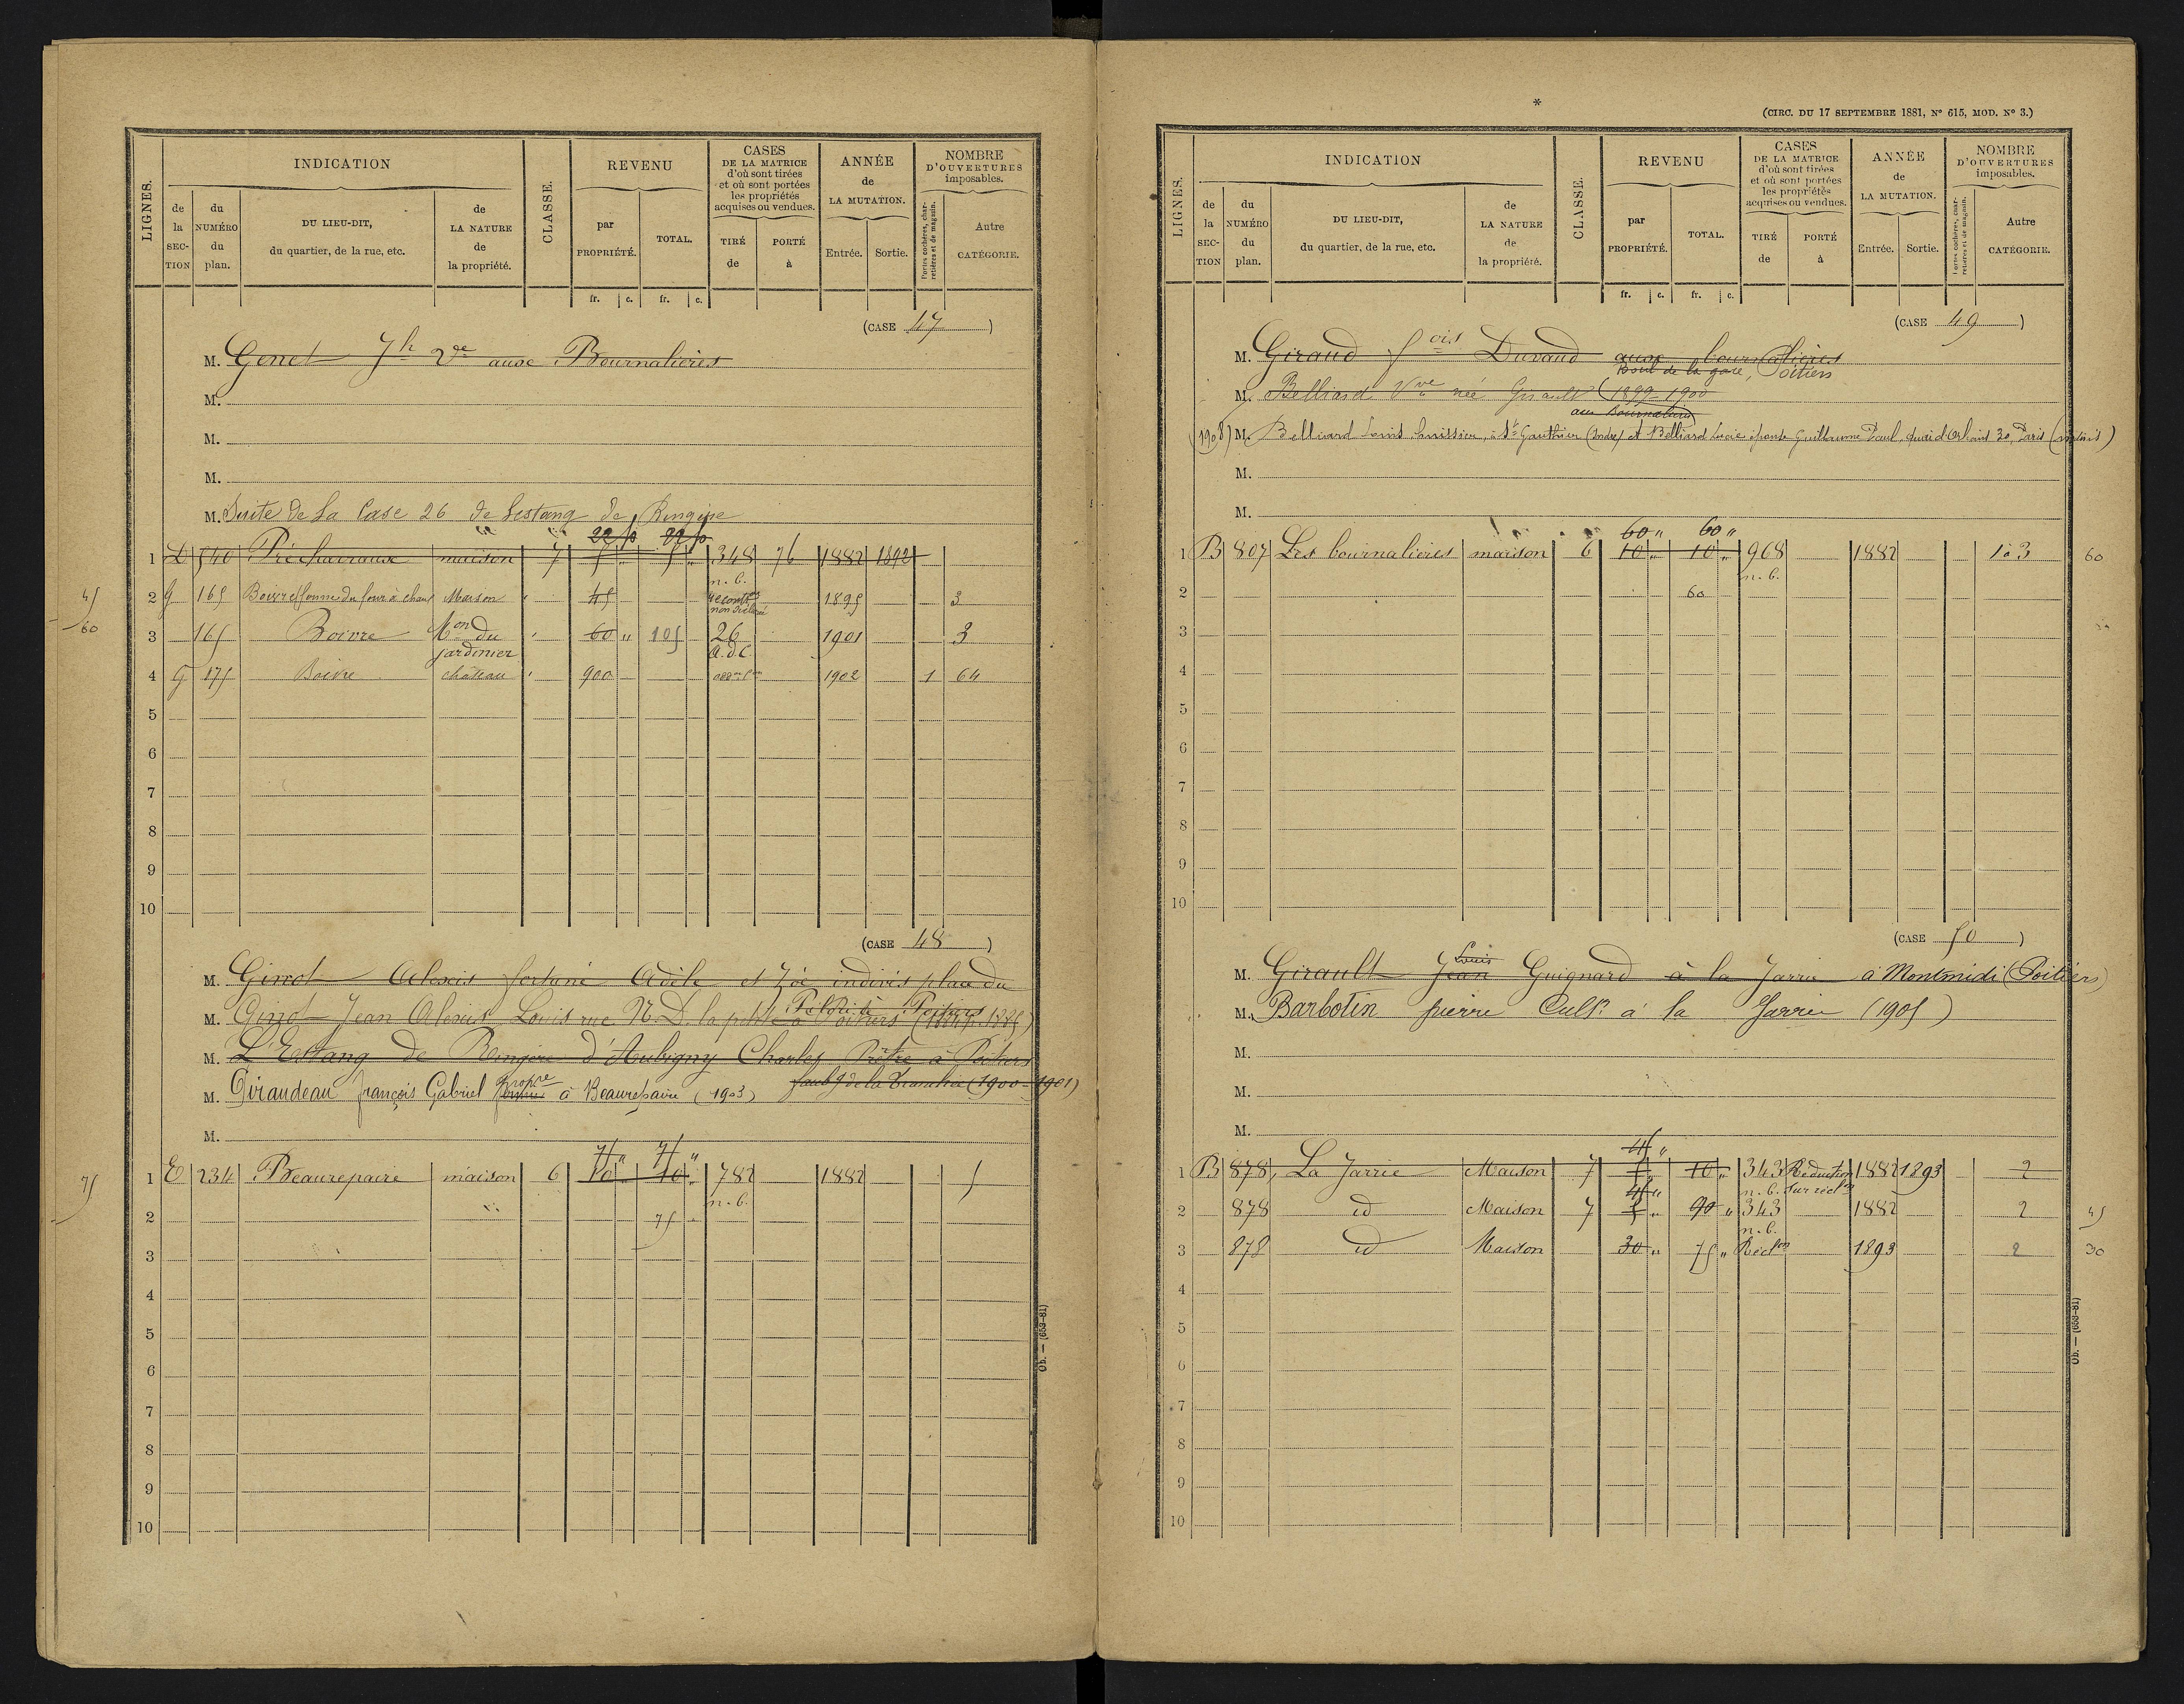 LIGNES.
INDICATION
de la SECTION
du NUMÉRO du plan.
DU LIEU-DIT, du quartier, de la rue, etc.
de LA NATURE de la propriété.
CLASSE.
REVENU
par PROPRIÉTÉ.
TOTAL.
fr. c. fr. c.
CASES DE LA MATRICE d'où sont tirées et où sont portées les propriétés acquises ou vendues.
TIRÉ de
PORTÉ à
ANNÉE de LA MUTATION.
Entrée.
Sortie.
NOMBRE D'OUVERTURES imposables.
Portes cochères, charretières et de magasin.
Autre CATÉGORIE.
(CASE 47)
M. Genet Jh Vve aux Bournalières
M.
M.
M.
M. Suite de la Case 26 de Lestang de Ringère
22 50 22 50
1 D 540 maison 7 5 „ 5 „ 348 76 1882 1892
n. b.
45
2 G 165 Boivre (ferme du four à chaux Maison 45 non déclaré 1895 3
60
3 165 Boivre Mon du jardinier 60 „ 105 26 1901 3
a.d.C.
4 G 175 Boivre château 900 1902 1 64
5
6
7
8
9
10
(CASE 48)
M. Ginot Alexis fortuné Adèle et Zoé indivis plan du
Pilori à Poitiers
M. Ginot Jean Alexis Louis rue N.D. la petite à Poitiers 1885)
M. L'Estang de Ringère d'Aubigny Charles Prêtre à Poitiers
faubg de la Tranchée (1900-1901)
M. Giraudeau françois Gabriel propre à Beaurepaire (1903)
M.
75 „ 75 „
75
1 E 234 Beaurepaire maison 6 10 „ 10 „ 782 1882 5
n. b.
2 75
3
4
5
6
7
8
9
10
Ob. — (653-81)
*
(CIRC. DU 17 SEPTEMBRE 1881, N° 615, MOD. N° 3.)
LIGNES.
INDICATION
de la SECTION
du NUMÉRO du plan.
DU LIEU-DIT, du quartier, de la rue, etc.
de LA NATURE de la propriété.
CLASSE.
REVENU
par PROPRIÉTÉ.
TOTAL.
fr. c. fr. c.
CASES DE LA MATRICE d'où sont tirées et où sont portées les propriétés acquises ou vendues.
TIRÉ de
PORTÉ à
ANNÉE de LA MUTATION.
Entrée.
Sortie.
NOMBRE D'OUVERTURES imposables.
Portes cochères, charretières et de magasin.
Autre CATÉGORIE.
(CASE 49)
M. Giraud fois Durand aux bournalières
Boul de la gare, Poitiers
M. Belliard Vve née Girault (1899-1900
aux Bournalières
(1908) M. Belliard Louis huissier, à St Gauthier (Indre) et Belliard Lucie épouse Guillaume Paul, quai d'Orléans 30, Paris (indivis)
M.
M.
60 „ 60 „
1 B 807 Les bournalières maison 6 10 „ 10 „ 968 1882 1 à 3 60
n. b.
2 60
3
4
5
6
7
8
9
10
(CASE 50)
Louis
M. Girault Jean Guignard à la Jarrie à Montmidi (Poitiers)
M. Barbotin pierre Cultr à la Jarrie (1905)
M.
M.
M.
45 „
1 B 878 La Jarrie Maison 7 5 „ 10 „ 343 Réduction 1882 1893 2
n. b. sur récl on
45 „
2 878 id Maison 7 5 „ 90 „ 343 1882 2 45
n. b.
3 878 id Maison 30 „ 75 „ Réclon 1893 2 30
4
5
6
7
8
9
10
Ob. — (653-81)